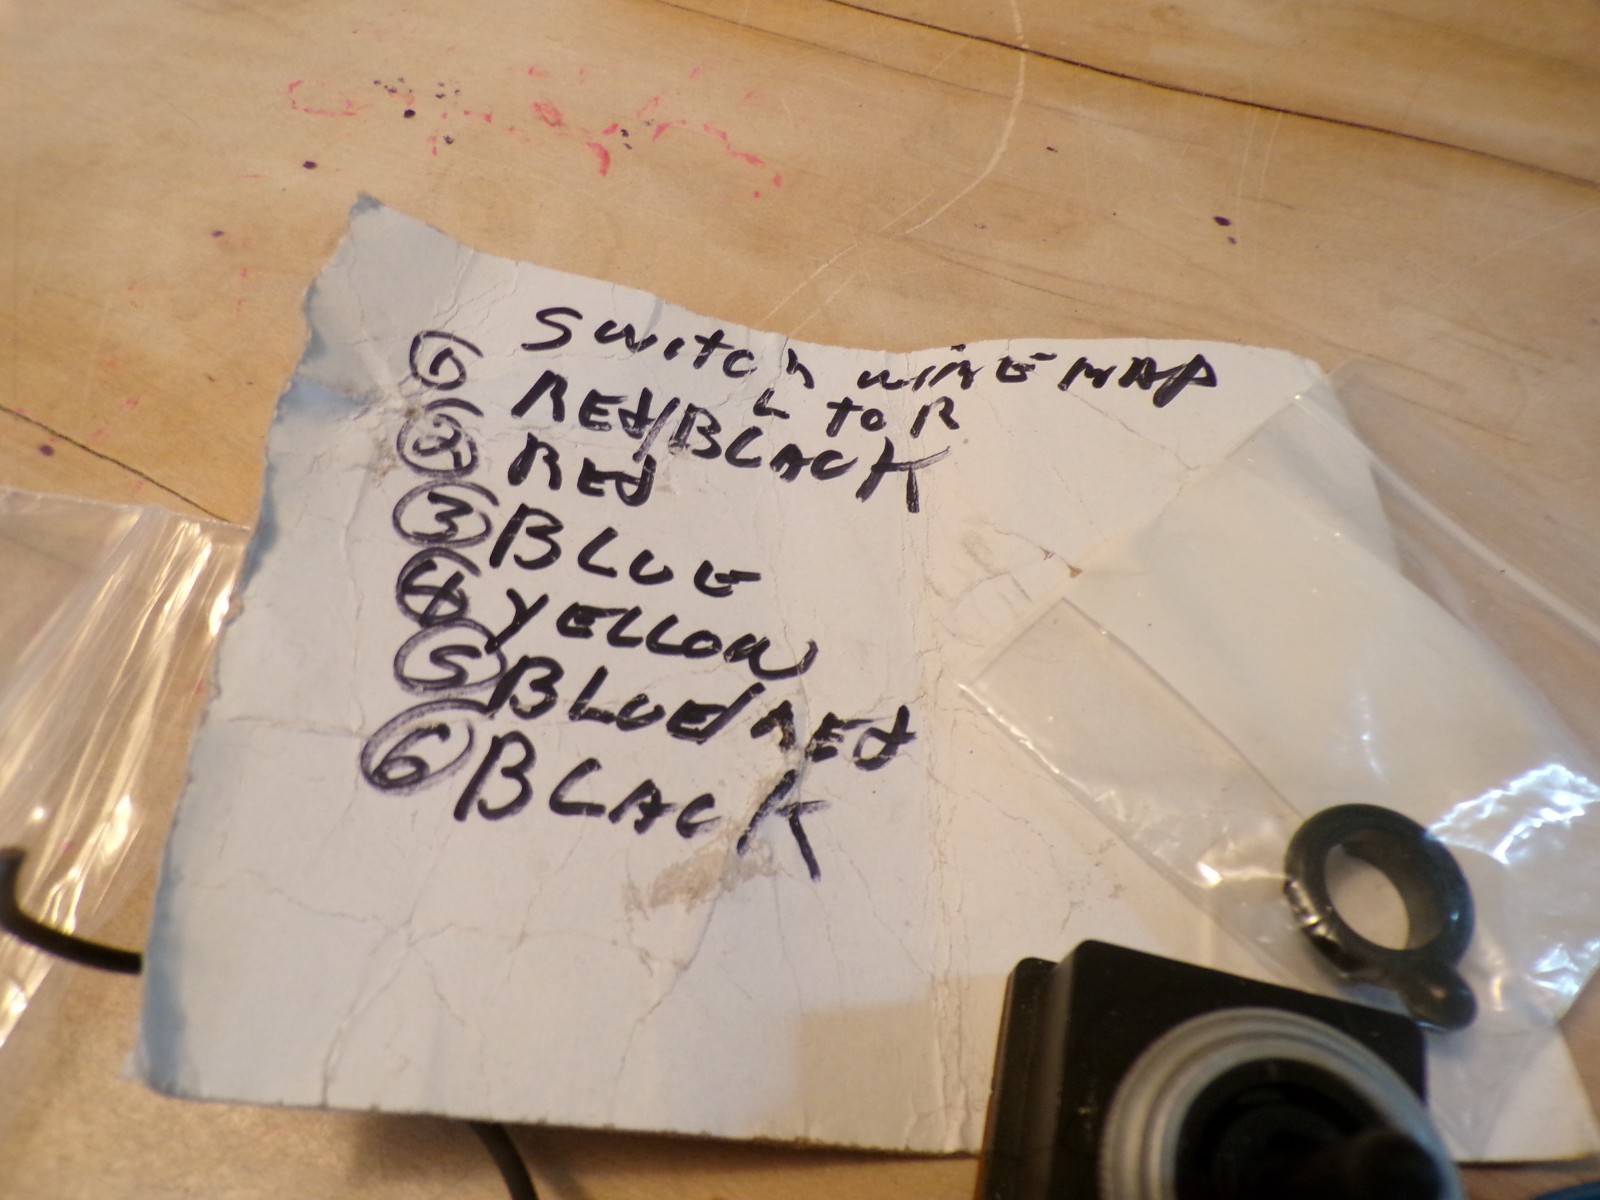 SwitCh wiRE MAP
L to R
① REd/BLACK
② REd
③ BLUE
④ YELLOW
⑤ BLUE/REd
⑥ BLACK